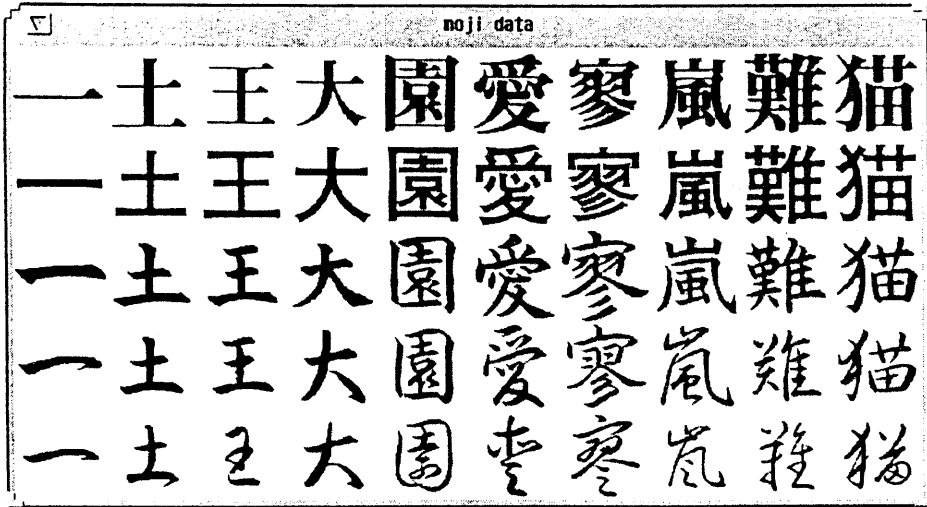 moji data
一土王大園愛寥嵐難猫
一土王大園愛寥嵐難猫
一土王大園愛寥嵐難猫
一土王大園愛寥嵐難猫
一土王大園愛寥嵐難猫